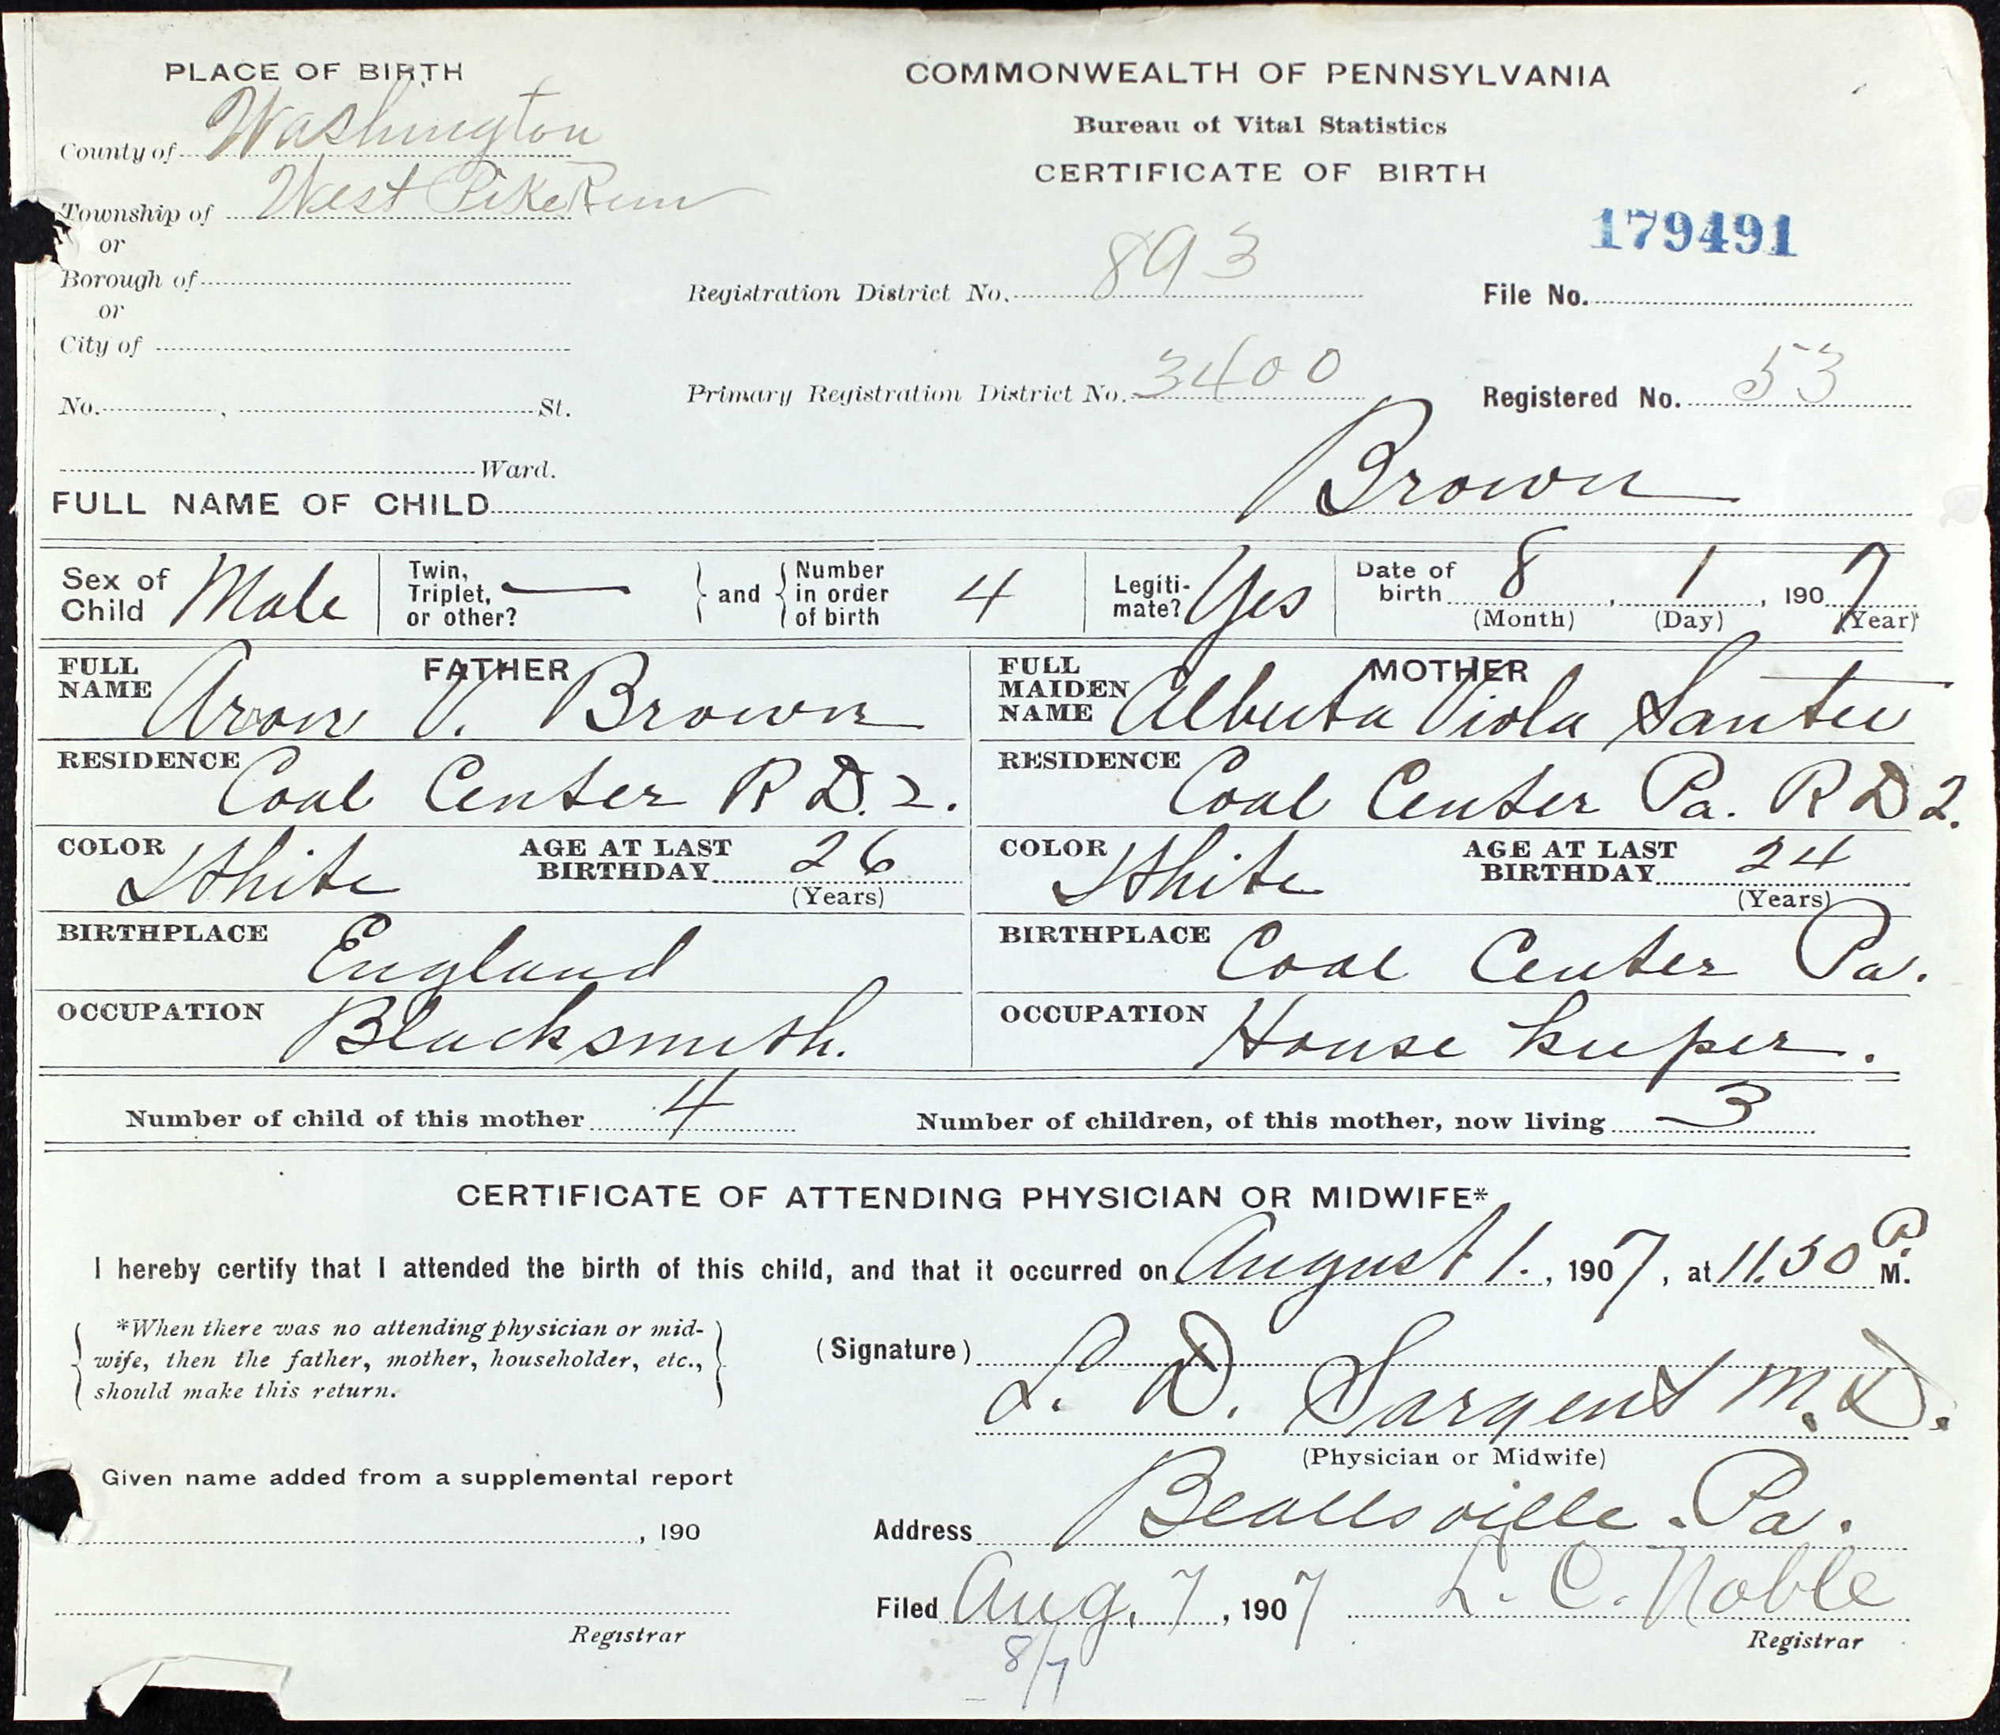 PLACE OF BIRTH
County of Washington
Township of West Pike Run
or
Borough of
or
City of
No. , St.
Ward.
COMMONWEALTH OF PENNSYLVANIA
Bureau of Vital Statistics
CERTIFICATE OF BIRTH
179491
Registration District No. 893
File No.
Primary Registration District No. 3400
Registered No. 53
FULL NAME OF CHILD Brown
Sex of Child Male
Twin, Triplet, or other? —
and
Number in order of birth 4
Legiti- mate? Yes
Date of birth 8, 1, 1907
(Month) (Day) (Year)
FATHER
FULL NAME Aron V. Brown
RESIDENCE Coal Center R D. 2.
COLOR White
AGE AT LAST BIRTHDAY 26
(Years)
BIRTHPLACE England
OCCUPATION Blacksmith.
MOTHER
FULL MAIDEN NAME Alberta Viola
RESIDENCE Coal Center Pa. R D 2.
COLOR White
AGE AT LAST BIRTHDAY 24
(Years)
BIRTHPLACE Coal Center Pa.
OCCUPATION House keeper.
Number of child of this mother 4
Number of children, of this mother, now living 3
CERTIFICATE OF ATTENDING PHYSICIAN OR MIDWIFE*
I hereby certify that I attended the birth of this child, and that it occurred on August 1., 1907, at 11.30 P. M.
*When there was no attending physician or mid-
wife, then the father, mother, householder, etc.,
should make this return.
(Signature) L. D. Sargent M.D.
(Physician or Midwife)
Given name added from a supplemental report
, 190
Registrar
Address Beallsville. Pa.
Filed Aug. 7, 1907 L. C. Noble
Registrar
8/7